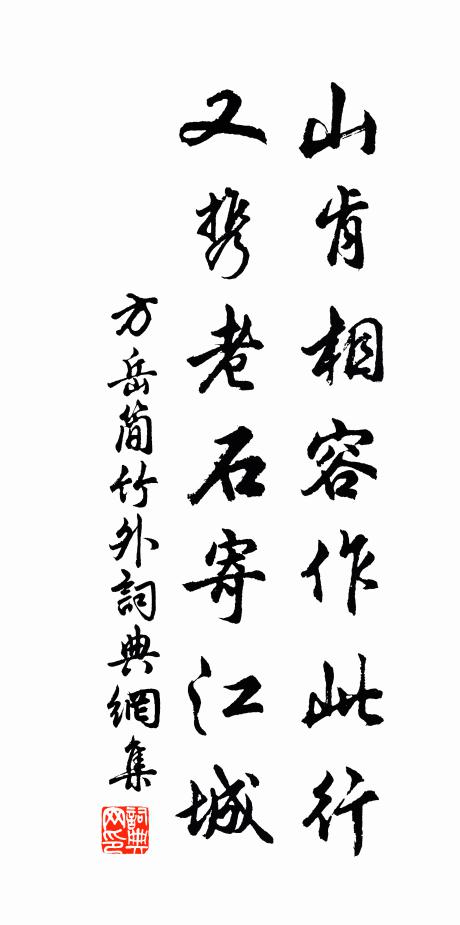 山肯相容作此行
又携老石寄江城
方岳簡竹外詞典網集
詞典网印